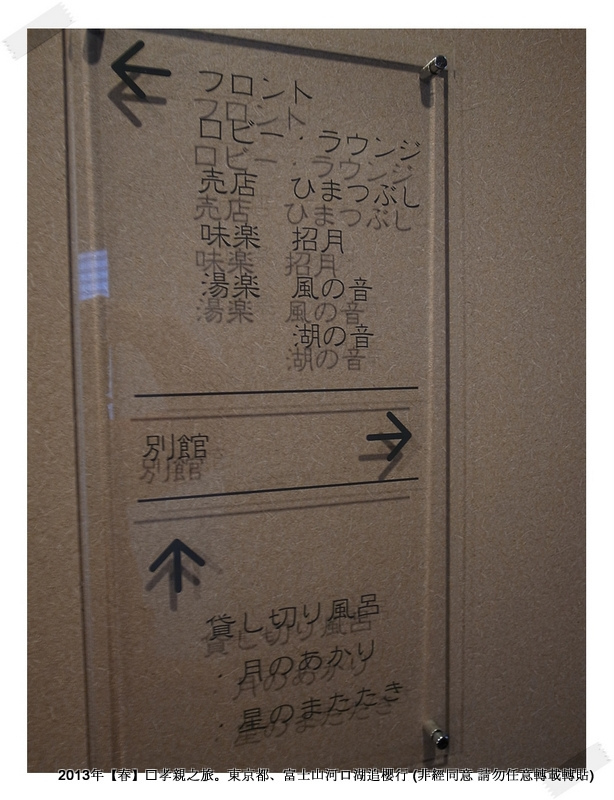 ←
フロント
ロビー・ラウンジ
売店 ひまつぶし
味楽 招月
湯楽 風の音
湖の音
別館 →
↑
貸し切り風呂
・月のあかり
・星のまたたき
2013年【春】口孝親之旅。東京都、富士山河口湖追櫻行 (非經同意 請勿任意轉載轉貼)